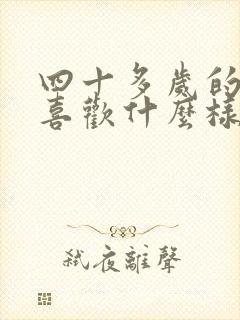 四十多歲的
喜歡什麼樣
弒夜離聲